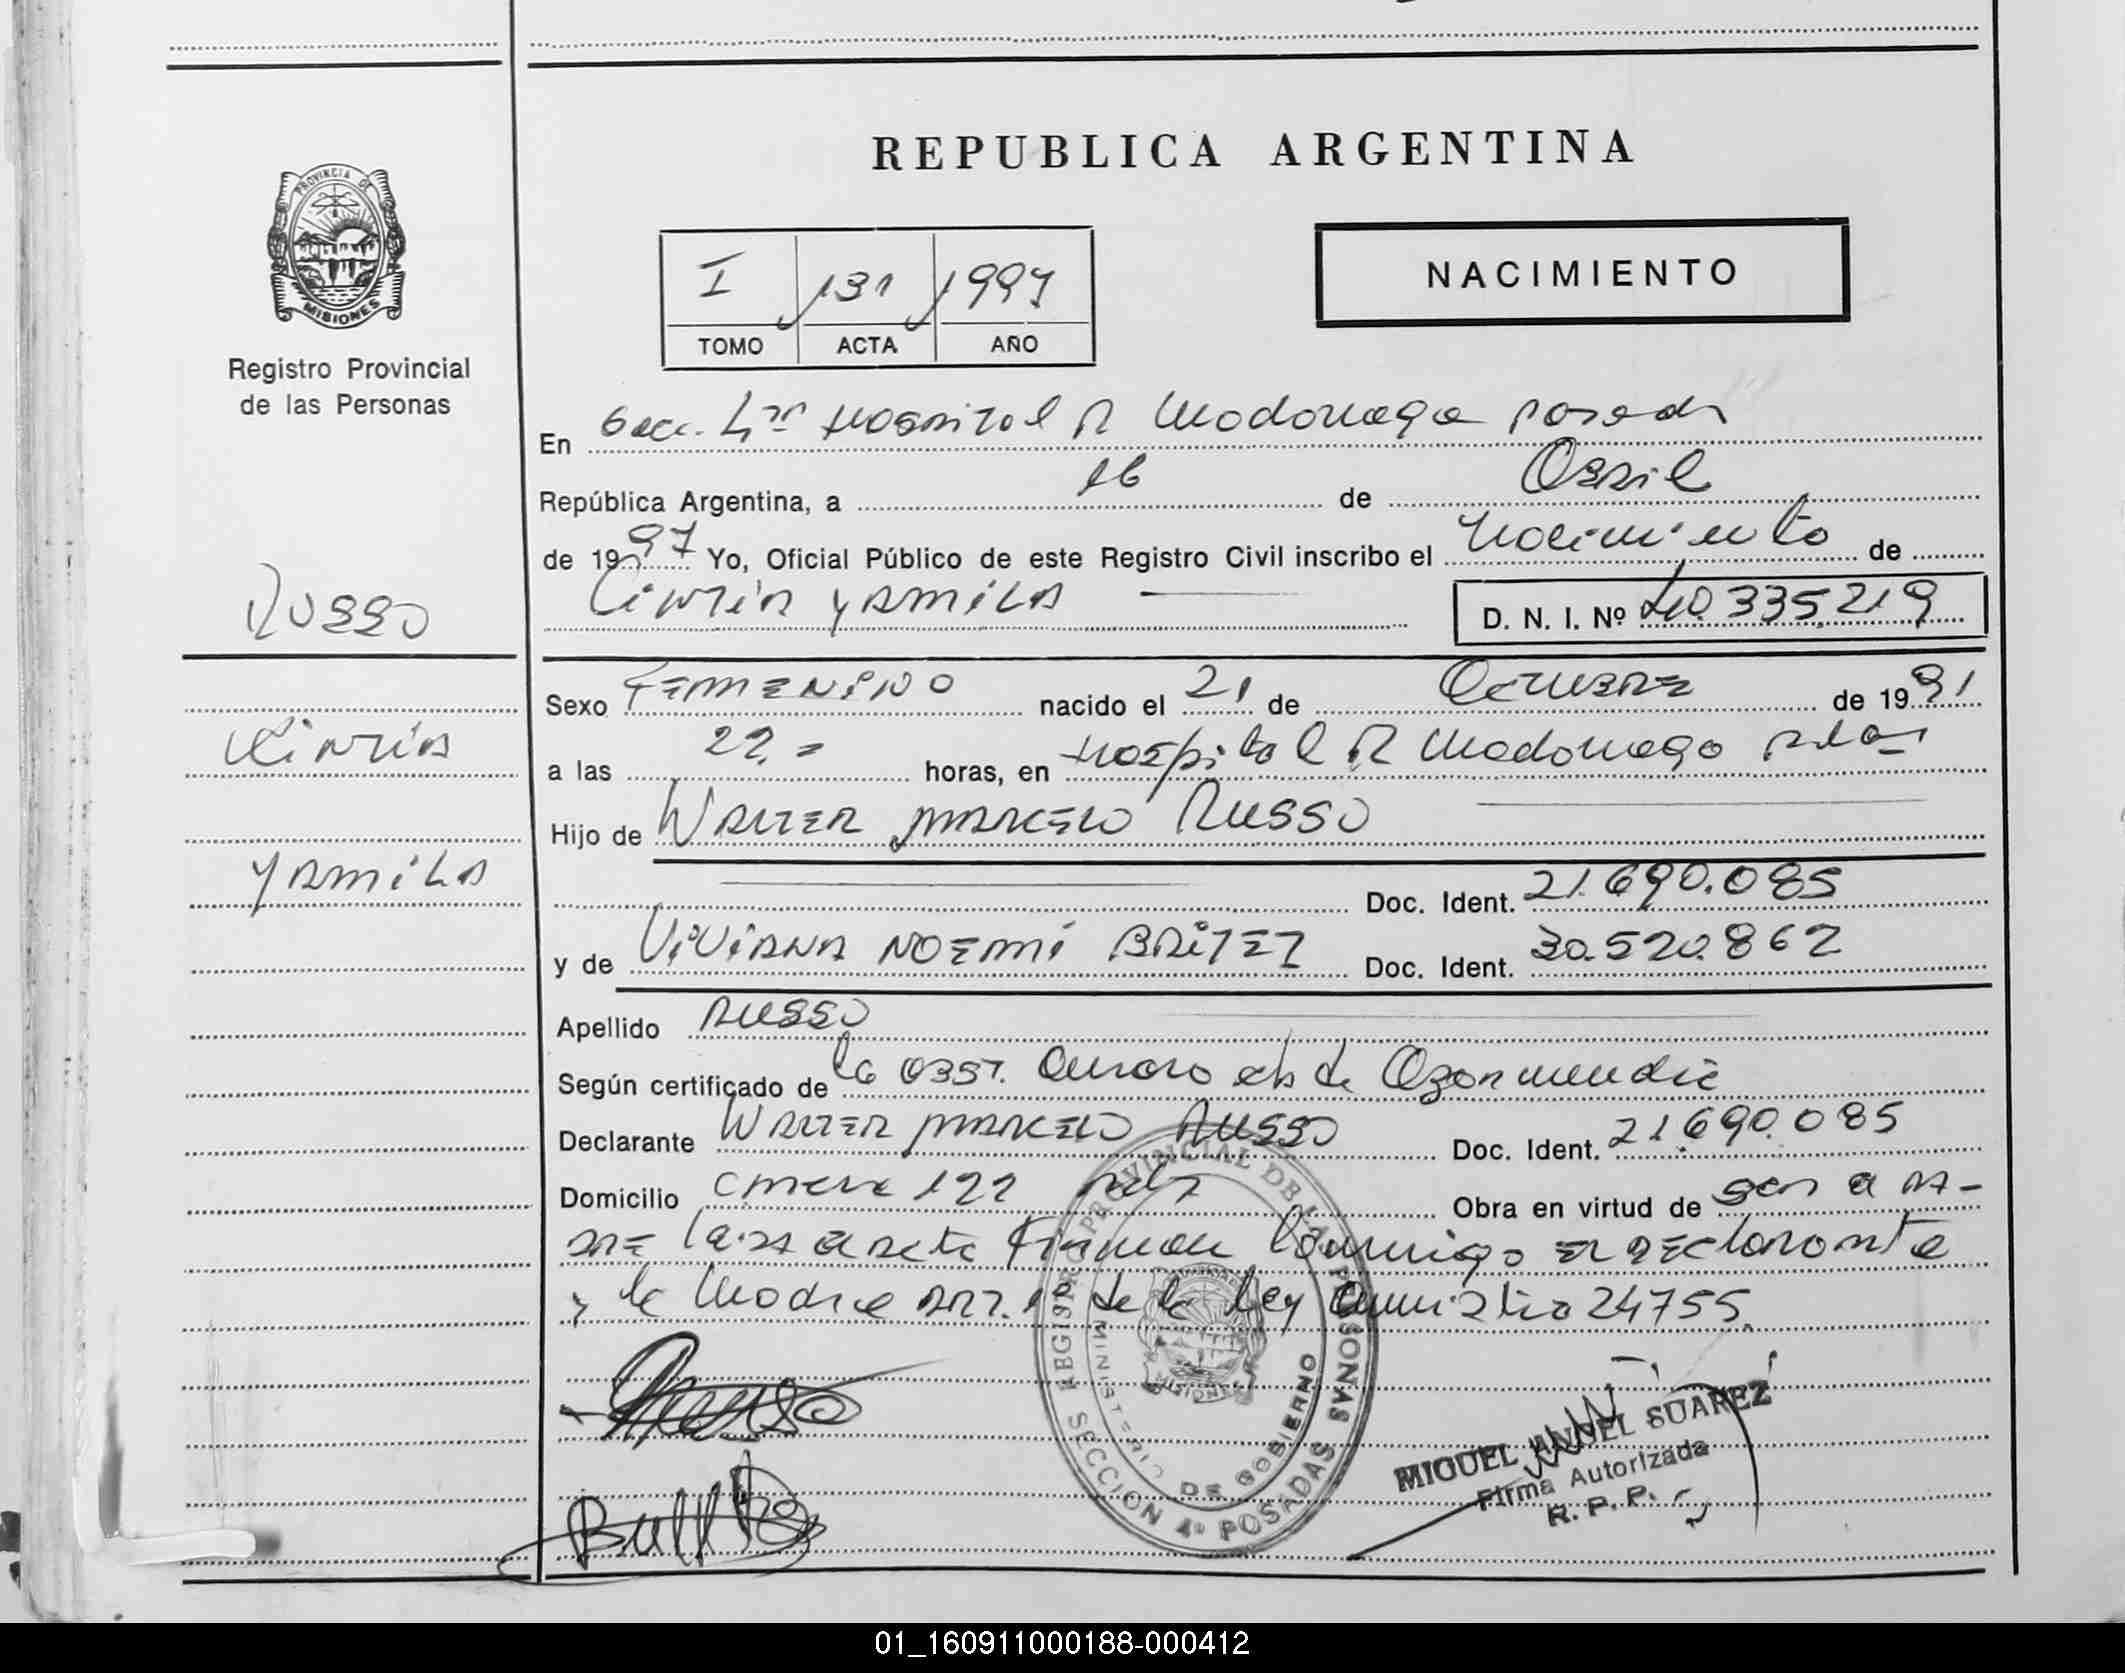 REPUBLICA ARGENTINA
PROVINCIA DE
MISIONES
Registro Provincial
de las Personas
NACIMIENTO
I 131 1997
TOMO ACTA AÑO
En Secc. 4ta Hospital R Madariaga Posadas
República Argentina, a 16 de Abril
de 1997 Yo, Oficial Público de este Registro Civil inscribo el Nacimiento de
Cintia Yamila
D. N. I. Nº 40.335.219
Russo
Cintia
Yamila
Sexo Femenino nacido el 21 de Octubre de 1991
a las 22.= horas, en Hospital R Madariaga Pdas
Hijo de Walter Marcelo Russo
Doc. Ident. 21.690.085
y de Viviana Noemi Britez Doc. Ident. 30.520.862
Apellido Russo
Según certificado de la Obst. de
Declarante Walter Marcelo Russo Doc. Ident. 21690.085
Domicilio 122 Pdas Obra en virtud de ser a Pa-
dre acta Firman Conmigo el declarante
y la Madre de la Ley Amnistia 24755.
REGISTRO PROVINCIAL DE LAS PERSONAS
MINISTERIO DE GOBIERNO
MISIONES
SECCION 4º POSADAS
MIGUEL ANGEL SUAREZ
Firma Autorizada
R. P. P.
01_160911000188-000412